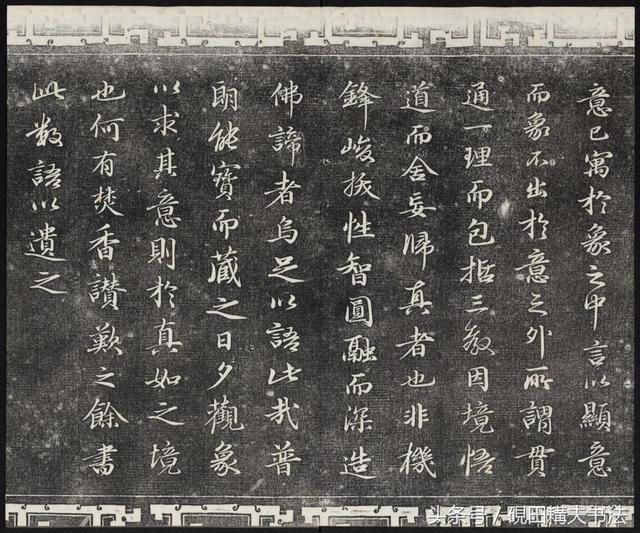 意已寓於象之中言以顯意
而象不出於意之外所謂貫
通一理而包括三教因境悟
道而舍妄歸真者也非機
鋒峻拔性智圓融而深造
佛諦者烏足以語此哉普
明能寶而藏之日夕觀象
以求其意則於真如之境
也何有焚香讃歎之餘書
此数語以遺之
头条号／硯田構夫书法